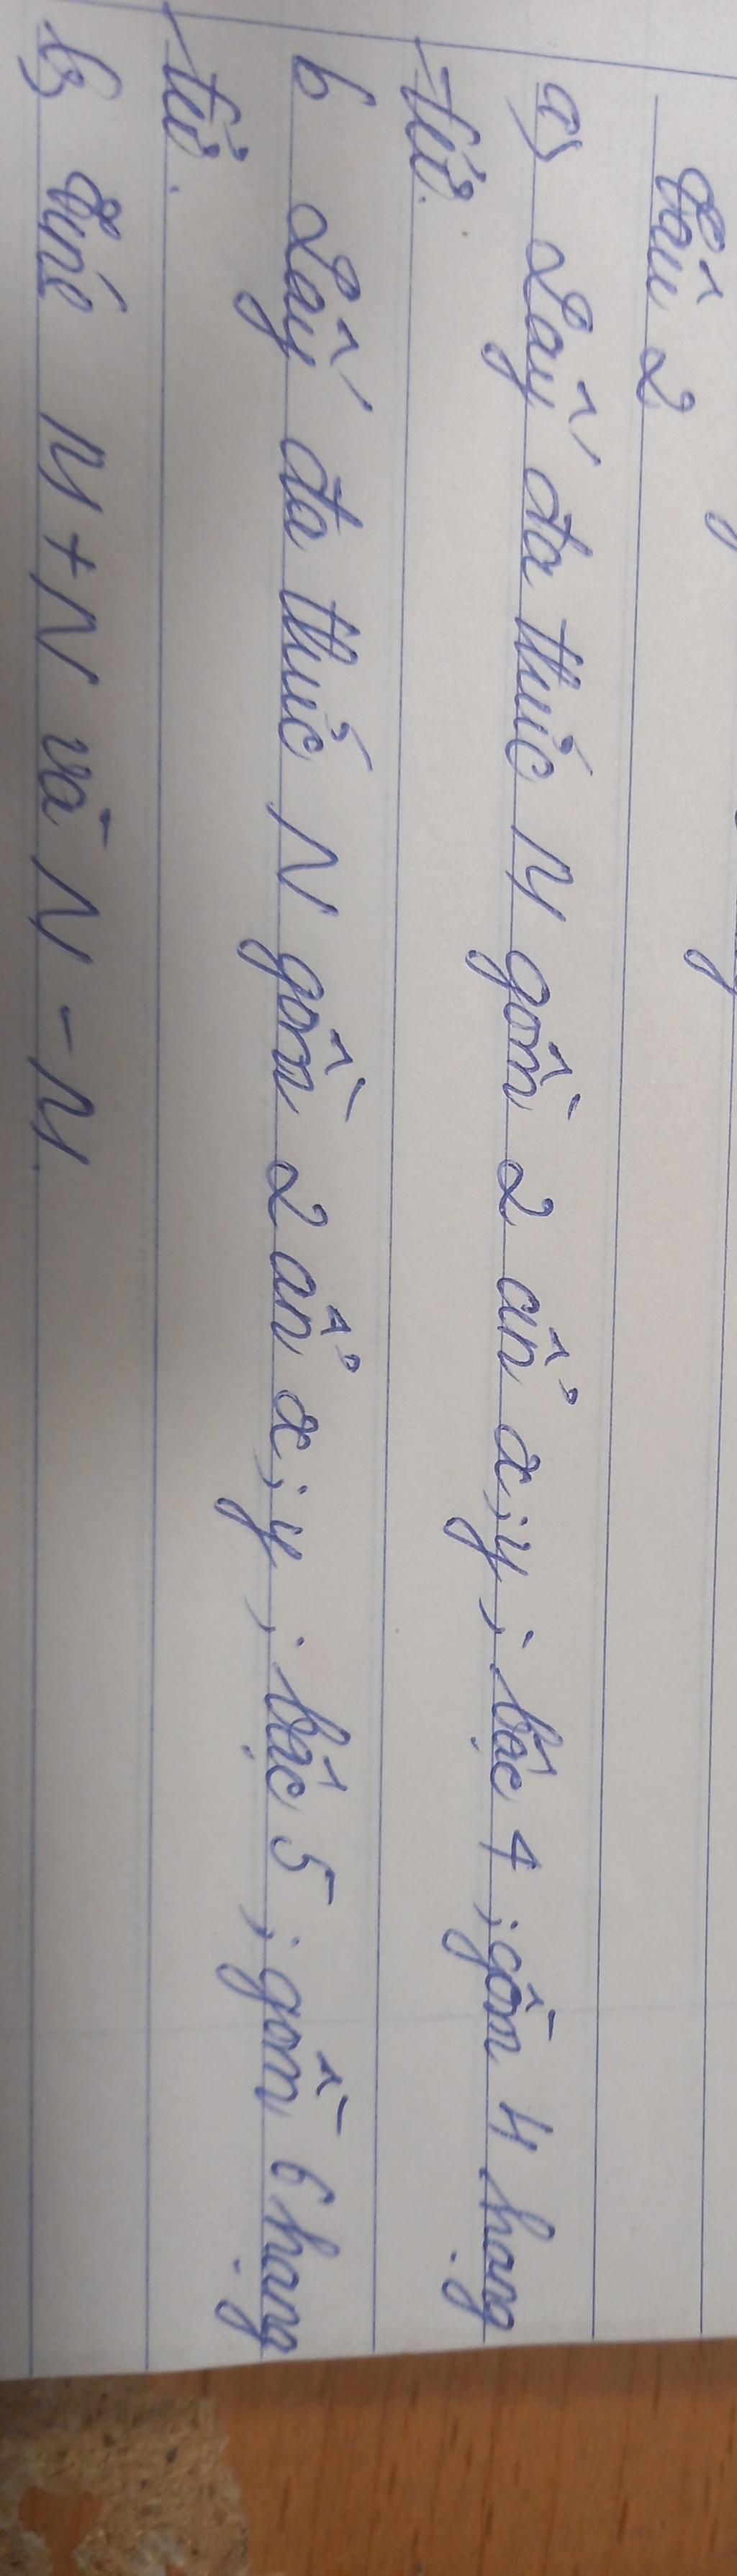 Bài 2
a) Lấy đa thức M gồm 2 ẩn x; y; bậc 4; gồm 4 hạng
tử.
b Lấy đa thức N gồm 2 ẩn x; y; bậc 5; gồm 6 hạng
tử.
b) Tính M + N và N - M.